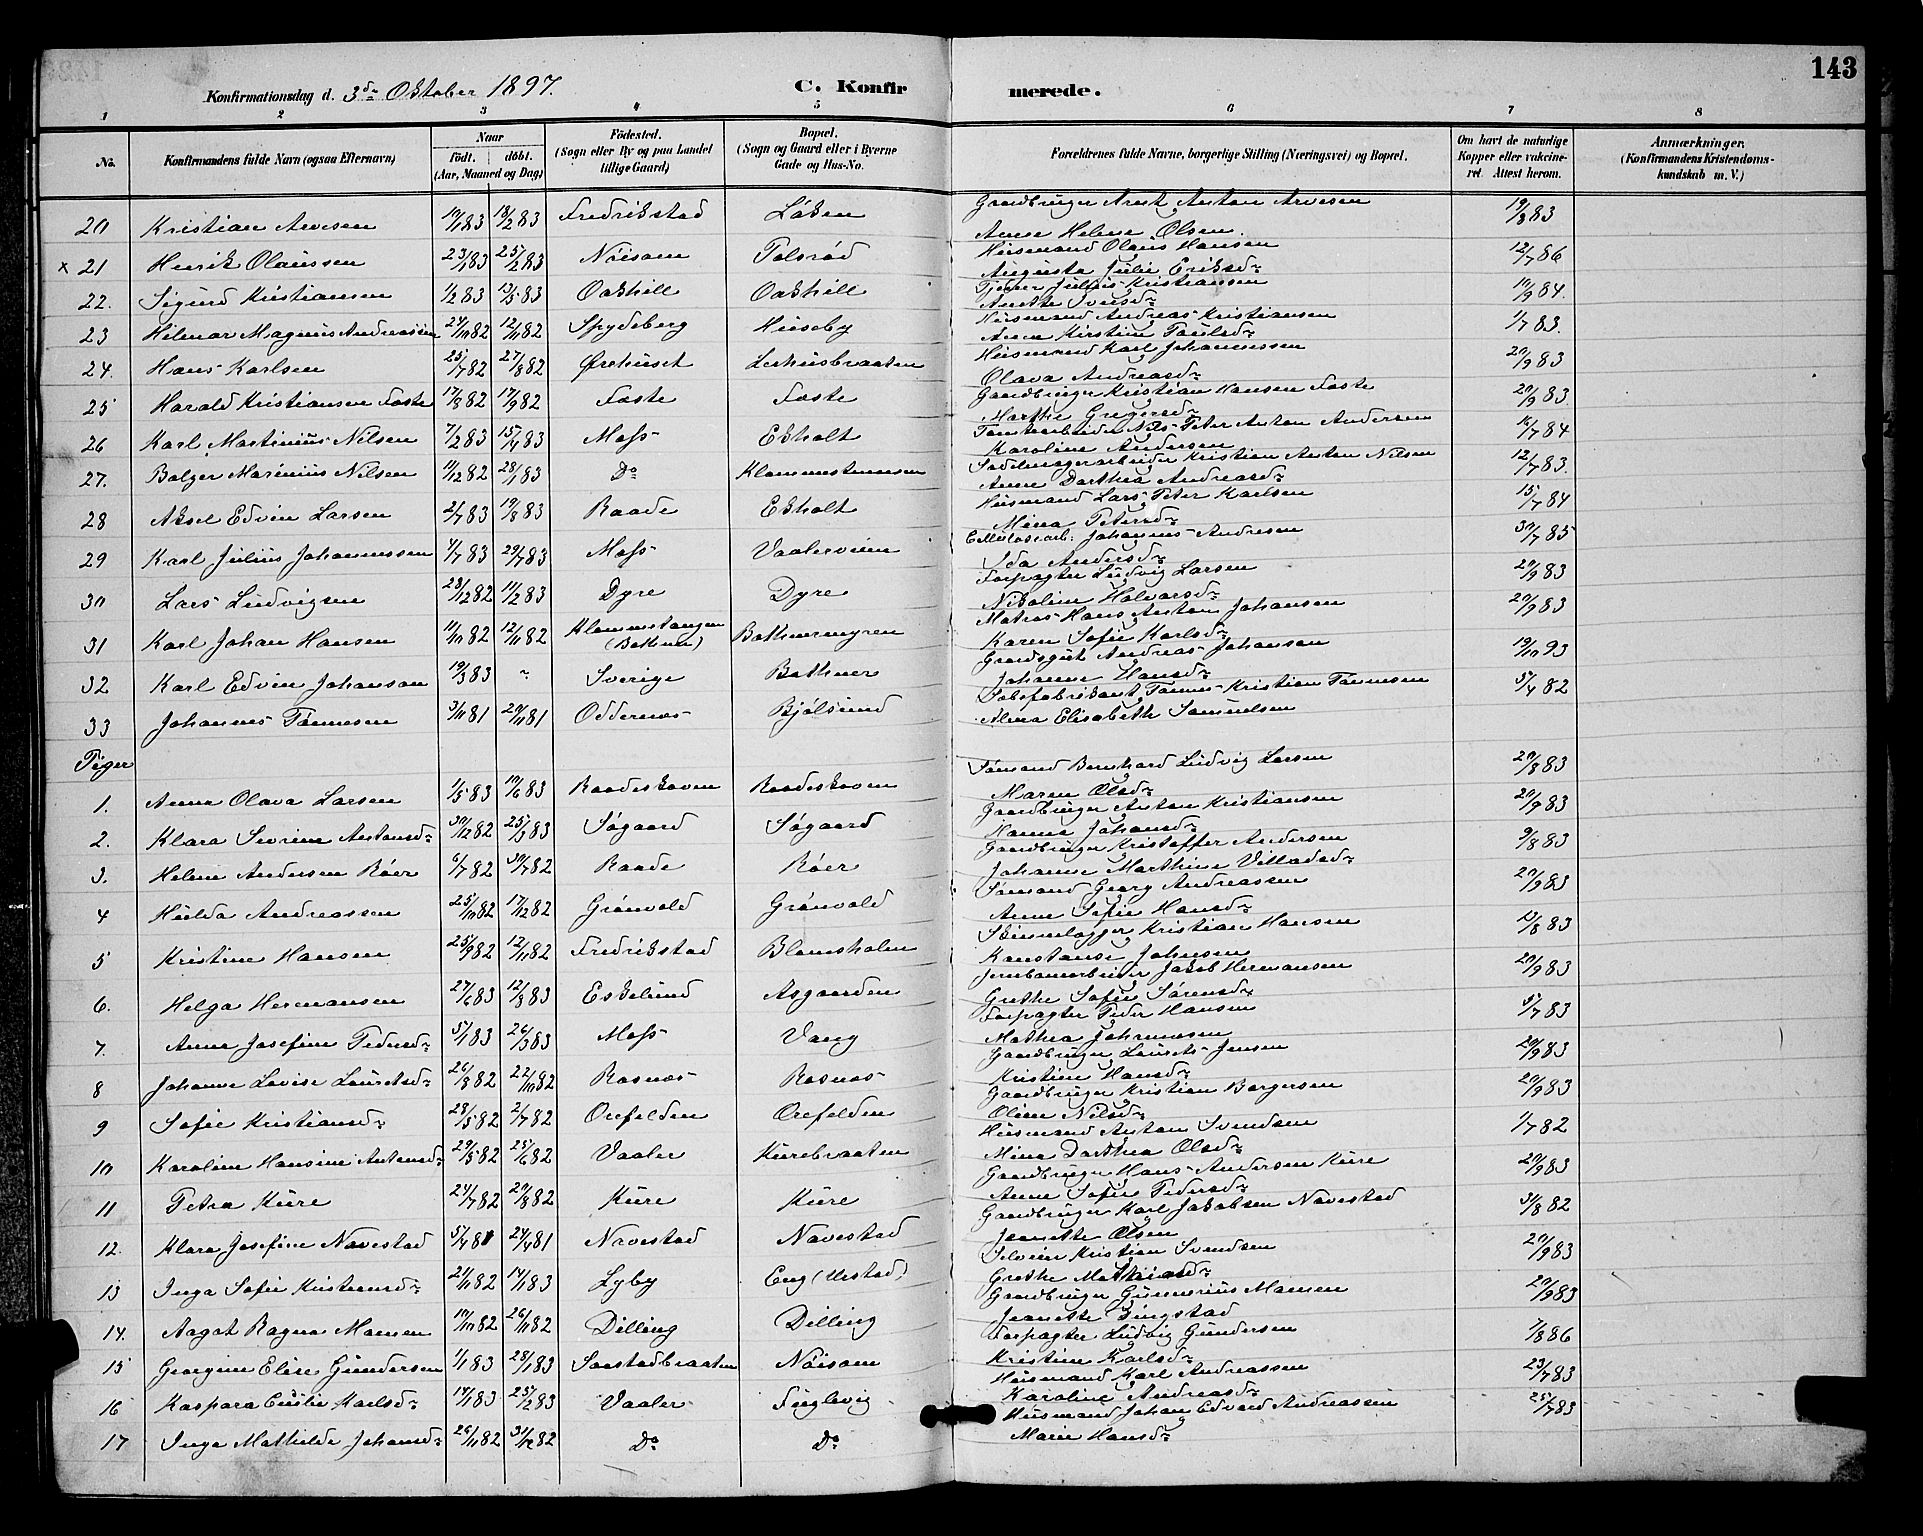 143
Konfirmationsdag d. 3de Oktober 1897. C. Konfirmerede.
1 2 3 4 5 6 7 8
No. Konfirmandens fulde Navn (ogsaa Efternavn) Naar født. døbt. (Aar, Maaned og Dag) Fødested. (Sogn eller By og paa Landet tillige Gaard) Bopæl. (Sogn og Gaard eller i Byerne Gade og Hus-No. Forældrenes fulde Navne, borgerlige Stilling (Næringsvei) og Bopæl. Om havt de naturlige Kopper eller vakcineret. Attest herom. Anmærkninger. (Konfirmandens Kristendomskundskab m. V.)
20 Kristian Arvesen 19/1 83 18/2 83 Fredrikstad Løken Gaardbruger Arnt Anton Arvesen 19/8 83
Anne Helene Olsen.
x 21 Henrik Olaussen 23/1 83 25/2 83 Nöisom Tolsrød Husmand Olaus Hansen 12/7 86
Augusta Julie Eriksd:
22. Sigurd Kristiansen 1/2 83 13/5 83 Oakhill Oakhill Tjener Julius Kristiansen 10/9 84.
Anette Iversd:
23 Hilmar Magnus Andreassen 24/10 82 12/11 82 Spydeberg Huseby Husmand Andreas Kristiansen 1/7 83.
Anne Kirstine Paulsd:
24. Hans Karlsen 25/7 82 27/8 82 Ørehuset Lerhusbraaten Husmand Karl Johannessen 20/9 83
Olava Andreasd:
25 Harald Kristiansen Faste 17/8 82 17/9 82 Faste Faste Gaardbruger Kristian Hansen Faste 20/9 83
Marthe Gregersd:
26 Karl Martinius Nilsen 7/2 83 15/4 83 Moss Ekholt Tomtearbeider Nils Peter Anton Andersen 16/7 84
Karoline Andersen
27. Bolger Marinius Nilsen 11/12 82 28/1 83 Do Klommestensen Sadelmagerarbeider Kristian Anton Nilsen 12/7 83.
Anne Dorthea Andreasd:
28 Aksel Edvin Larsen 2/7 83 19/8 83 Raade Ekholt Husmand Lars Peter Karlsen 15/7 84
Mina Petersd:
29 Karl Julius Johannessen 4/7 83 29/7 83 Moss Vaalerveien Cellulosearb: Johannes Andresen 30/7 85
Ida Andersd:
30 Lars Ludvigsen 28/12 82 11/2 83 Dyre Dyre Forpagter Ludvig Larsen 20/9 83
Nikoline Halvorsd:
31 Karl Johan Hansen 11/10 82 12/11 82 Klommestangen (Botkner) Botknermyren Matros Hans Anton Johansen 20/9 83
Karen Sofie Karlsd:
32 Karl Edvin Johanson 19/3 83 " Sverige Botkner Gaardsgut Andreas Johanson 19/10 93
Johanne Hansd:
33 Johannes Tønnesen 3/11 81 20/11 81 Oddernæs Bjølsund Sæbefabrikant Tønnes Kristian Tønnesen 5/4 82
Alma Elisabeth Samuelsen
Piger
1. Anna Olava Larsen 1/5 83 10/6 83 Raadeskoven Raadeskoven Sømand Bernhard Ludvig Larsen 20/8 83
Maren Olsd:
2. Klara Severine Antonsd: 30/12 82 25/3 83 Søgaard Søgaard Gaardbruger Anton Kristiansen 20/9 83
Hanna Johansd:
3. Helene Andersen Röer 6/7 82 30/7 82 Raade Röer Gaardbruger Kristoffer Andersen 9/8 83
Johanne Marthine Villadsd:
4 Hulda Andreassen 25/10 82 17/12 82 Grönvold Grönvold Sømand Georg Andreassen 20/9 83
Anne Sofie Hansd:
5 Kristine Hansen 25/9 82 12/11 82 Fredrikstad Blomsholm Skinnelægger Kristian Hansen 13/8 83
Konstanse Johnsen
6. Helga Hermansen 27/6 83 12/8 83 Eskelund Asgaarden Jernbanearbeider Jakob Hermansen 20/9 83
Grethe Sofie Sørensd:
7. Anna Josefine Pedersd: 5/1 83 26/3 83 Moss Vang Forpagter Peder Hansen 5/7 83
Mathea Johannesen
8 Johanne Lovise Lauritsd: 26/8 82 22/10 82 Rosnæs Rosnæs Gaardbruger Laurits Jensen 20/9 83
Kristine Hansd:
9 Sofie Kristiansd: 28/5 82 2/7 82 Orefelden Orefelden Gaardbruger Kristian Borgersen 20/9 83
Oline Nilsd:
10 Karoline Hansine Antonsd: 29/5 82 25/6 82 Vaaler Kurebraaten Husmand Anton Svendsen 1/7 82
Mina Dorthea Olsd:
11 Petra Kure 24/7 82 20/8 82 Kure Kure Gaardbruger Hans Andersen Kure 20/9 83
Anne Sofie Pedersd:
12. Klara Josefine Navestad 5/4 81 24/4 81 Navestad Navestad Gaardbruger Karl Jakobsen Navestad 31/8 82
Jeanette Olsen
13 Inga Sofie Kristiansd: 21/11 82 14/1 83 Lyby Eng (Urstad) Selveier Kristian Svendsen 20/9 83
Grethe Mathiasd:
14. Aagot Ragna Mamen 10/10 82 26/11 82 Dilling Dilling Gaardbruger Gunnerius Mamen 20/9 83
Jeanette Tingstad
15 Georgine Elise Gundersen 1/1 83 28/1 83 Saastadbraaten Nöisom Forpagter Ludvig Gundersen 7/8 86
Kristine Karlsd:
16 Kaspara Cecilie Karlsd: 14/1 83 25/2 83 Vaaler Fuglevig Husmand Karl Andreassen 23/7 83
Karoline Andreasd:
17 Inga Mathilde Johansd: 26/11 82 31/12 82 Do Do Husmand Johan Edvard Andreassen 25/7 83
Marie Hansd: